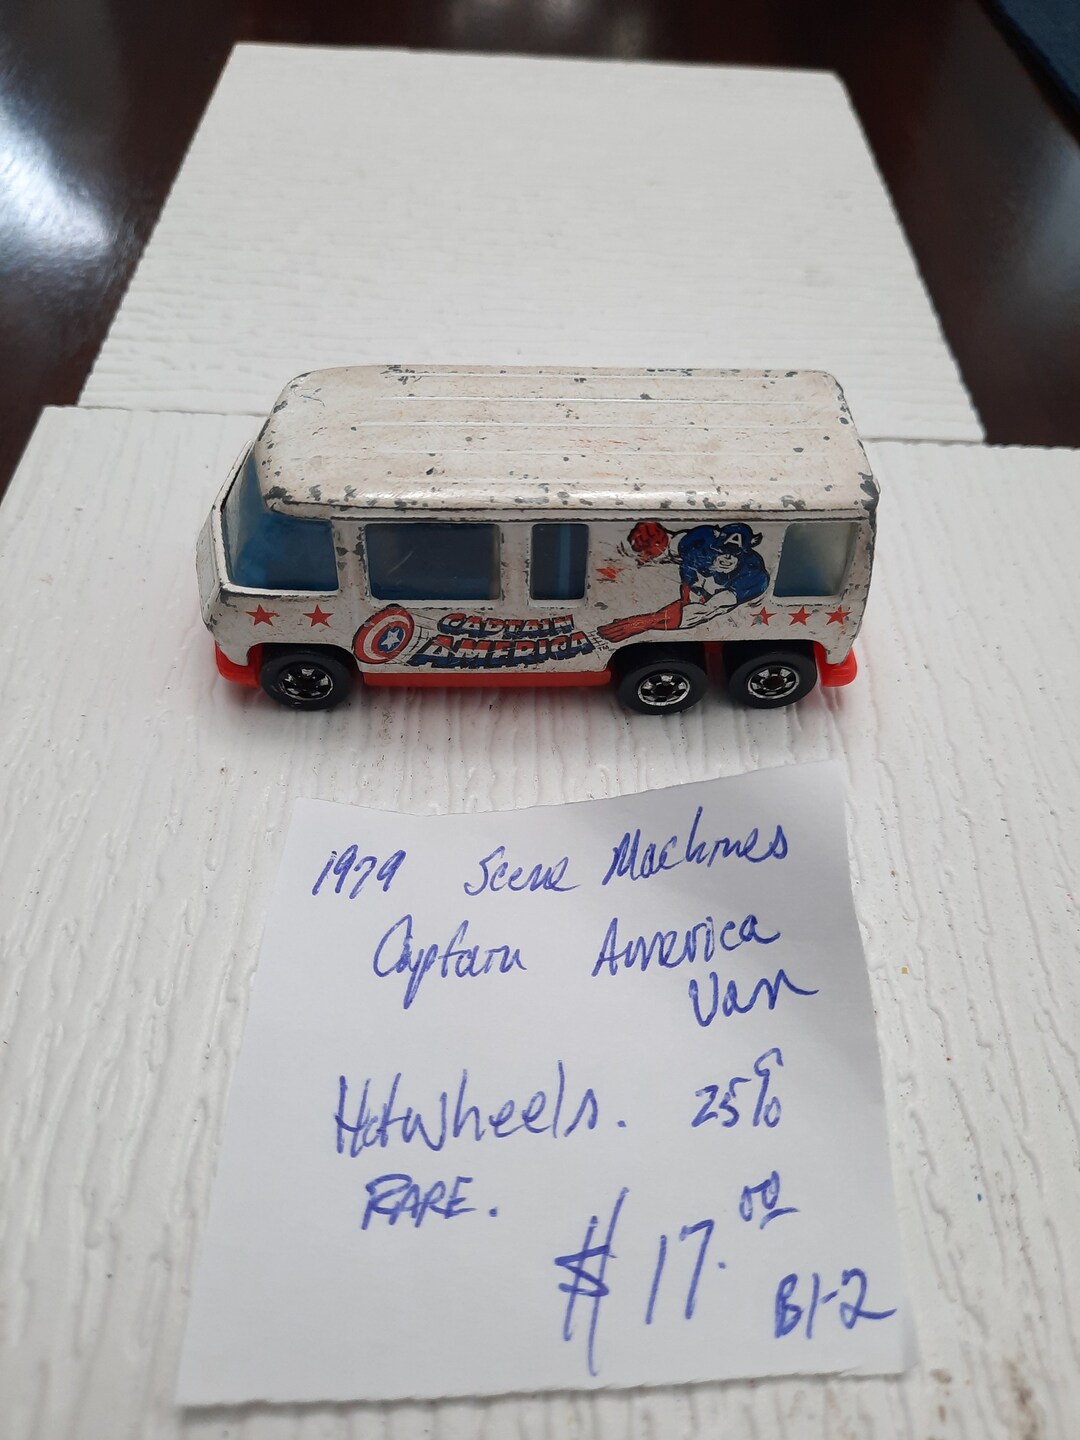 A
CAPTAIN
AMERICA
1979 Scene Machines
Captain America
Van
Hotwheels. 25%
RARE.
$17.00
B1-2